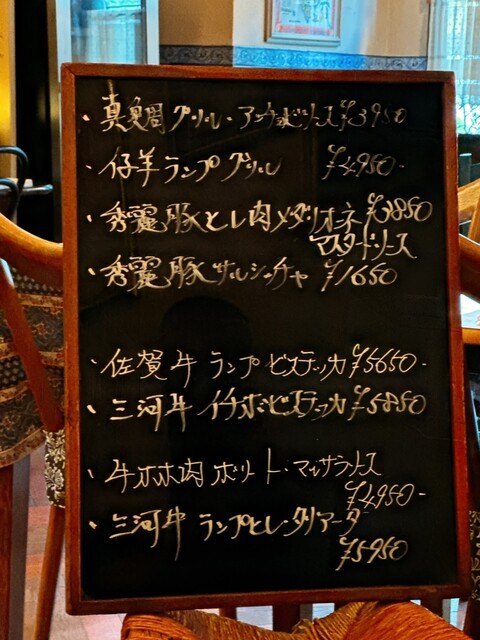 ・真鯛グリル・アンチョビソース ¥3950
・仔羊ランプグリル ¥4950-
・秀麗豚ヒレ肉メダリオーネ ¥3850
マスタードソース
・秀麗豚サルシッチャ ¥1650
・佐賀牛 ランプ ビステッカ ¥5650-
・三河牛 イチボビステッカ ¥5850
・牛ホホ肉 ボリート・マルサラソース
¥4950-
・三河牛 ランプヒレ・タリアータ
¥5950